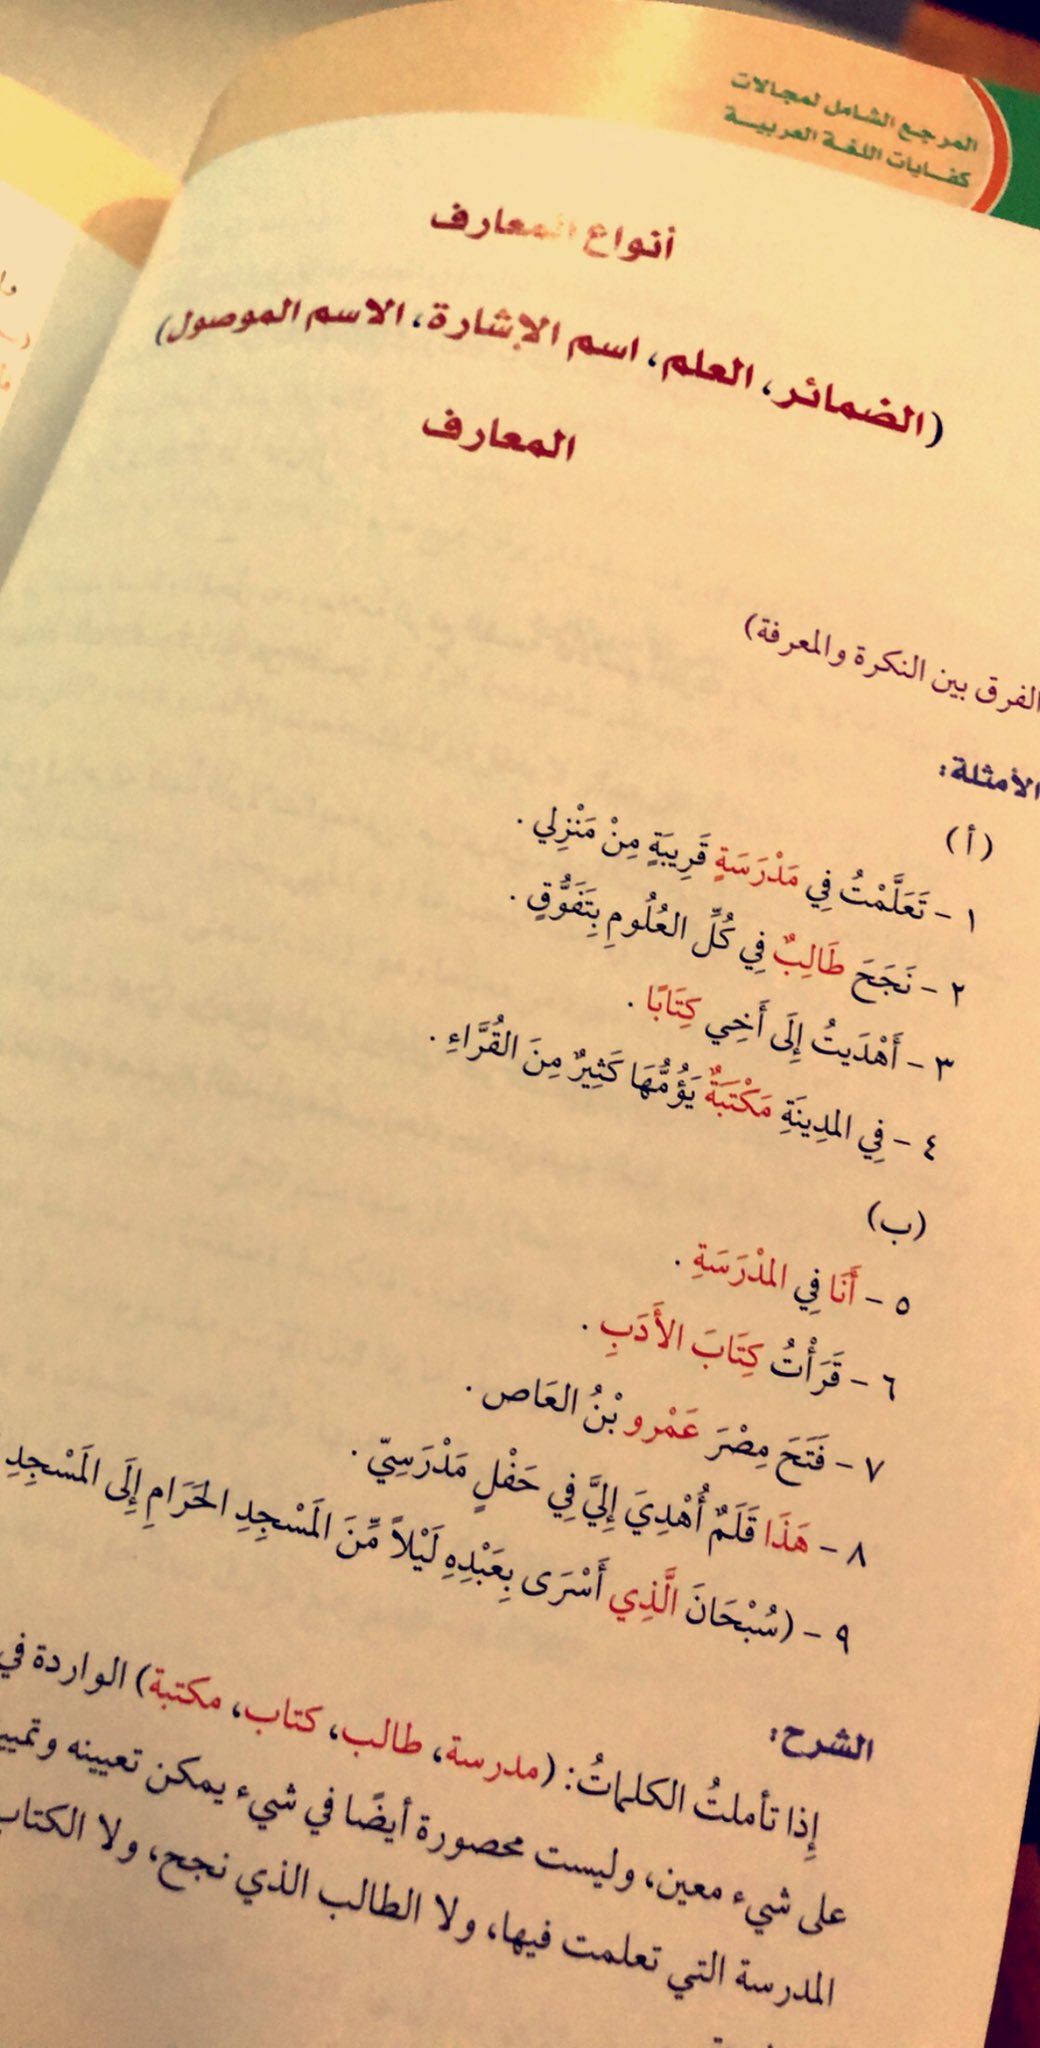 المرجع الشامل لمجالات
كفايات اللغة العربية
أنواع المعارف
(الضمائر، العلم، اسم الإشارة، الاسم الموصول)
المعارف
الفرق بين النكرة والمعرفة)
الأمثلة:
(أ)
١ - تَعَلَّمْتُ فِي مَدْرَسَةٍ قَرِيبَةٍ مِنْ مَنْزِلِي .
٢ - نَجَحَ طَالِبٌ فِي كُلِّ العُلُومِ بِتَفَوُّقٍ .
٣ - أَهْدَيتُ إِلَى أَخِي كِتَابًا .
٤ - فِي المدِينَةِ مَكْتَبَةٌ يَؤُمُّهَا كَثِيرٌ مِنَ القُرَّاءِ .
(ب)
٥ - أَنَا فِي المدْرَسَةِ .
٦ - قَرَأْتُ كِتَابَ الأَدَبِ .
٧ - فَتَحَ مِصْرَ عَمْرو بْنُ العَاص .
٨ - هَذَا قَلَمٌ أُهْدِيَ إِلَيَّ فِي حَفْلٍ مَدْرَسِيّ .
٩ - (سُبْحَانَ الَّذِي أَسْرَى بِعَبْدِهِ لَيْلاً مِّنَ المَسْجِدِ الحَرَامِ إِلَى المَسْجِدِ
الشرح:
إِذا تأملتُ الكلماتُ: (مدرسة، طالب، كتاب، مكتبة) الواردة في
على شيء معين، وليست محصورة أيضًا في شيء يمكن تعيينه
المدرسة التي تعلمت فيها، ولا الطالب الذي نجح، ولا الكتاب